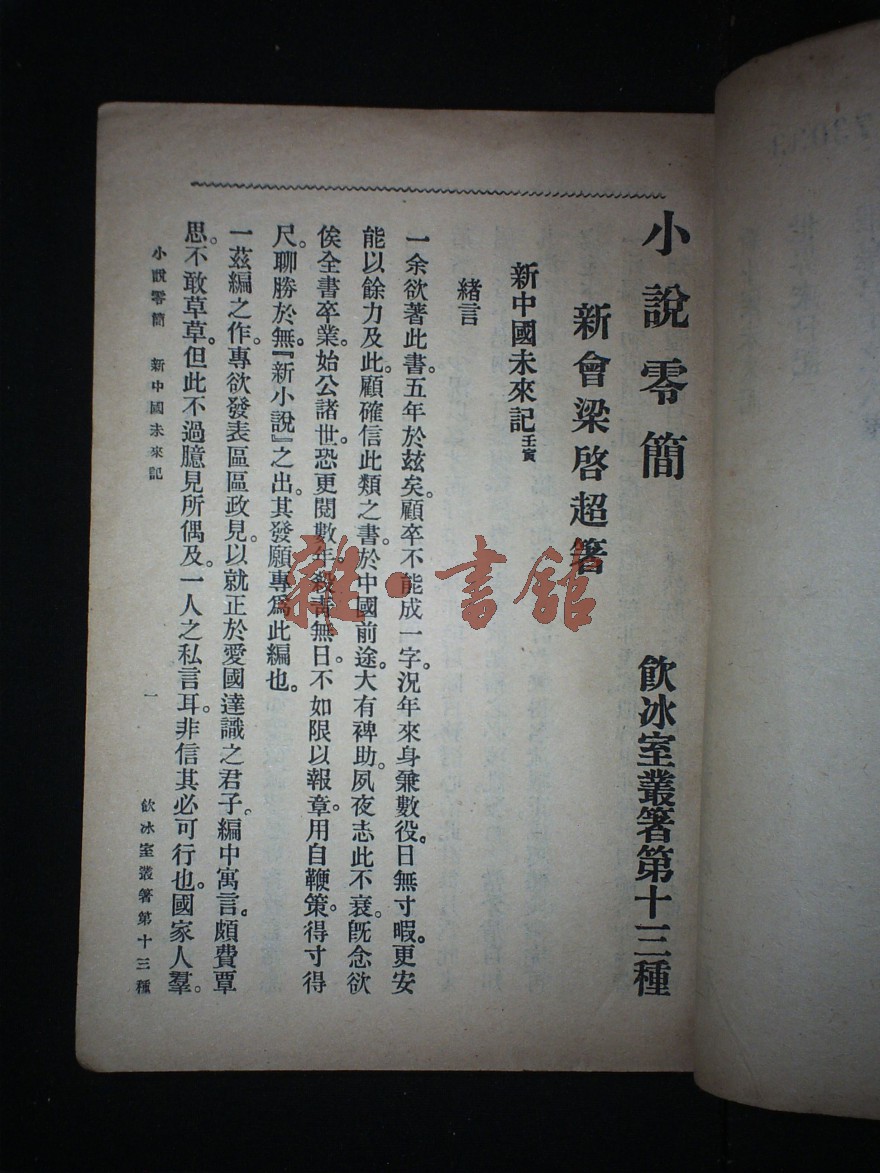 小說零簡
飲冰室叢箸第十三種
新會梁啓超箸
新中國未來記壬寅
緒言
一余欲著此書。五年於玆矣。顧卒不能成一字。況年來身兼數役。日無寸暇。更安
能以餘力及此。顧確信此類之書。於中國前途。大有裨助。夙夜志此不衰。旣念欲
俟全書卒業。始公諸世。恐更閱數年。殺靑無日。不如限以報章。用自鞭策。得寸得
尺。聊勝於無。『新小說』之出。其發願專爲此編也。
一玆編之作。專欲發表區區政見。以就正於愛國達識之君子。編中寓言。頗費覃
思。不敢草草。但此不過臆見所偶及。一人之私言耳。非信其必可行也。國家人羣。
小說零簡 新中國未來記
一
飲冰室叢箸第十三種
雜·書館